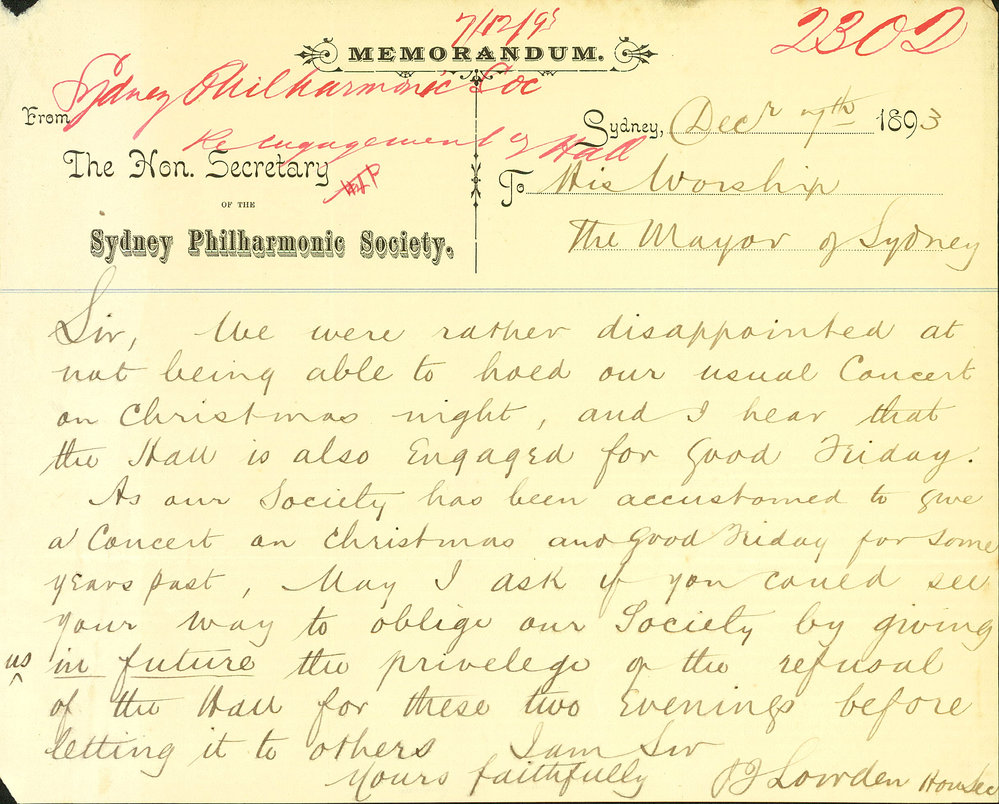 7/12/93
2302
MEMORANDUM.
Sydney Philharmonic Soc
From
Re engagement of Hall
Sydney, Decr 7th 1893
The Hon. Secretary
OF THE
Sydney Philharmonic Society.
To His Worship
The Mayor of Sydney
Sir, We were rather disappointed at
not being able to hold our usual Concert
on Christmas night, and I hear that
the Hall is also Engaged for Good Friday.
As our Society has been accustomed to give
a Concert on Christmas and Good Friday for some
years past, May I ask if you could see
your way to oblige our Society by giving
us in future the privelege of the refusal
of the Hall for these two Evenings before
letting it to others I am Sir
Yours faithfully Lowden Hon Sec